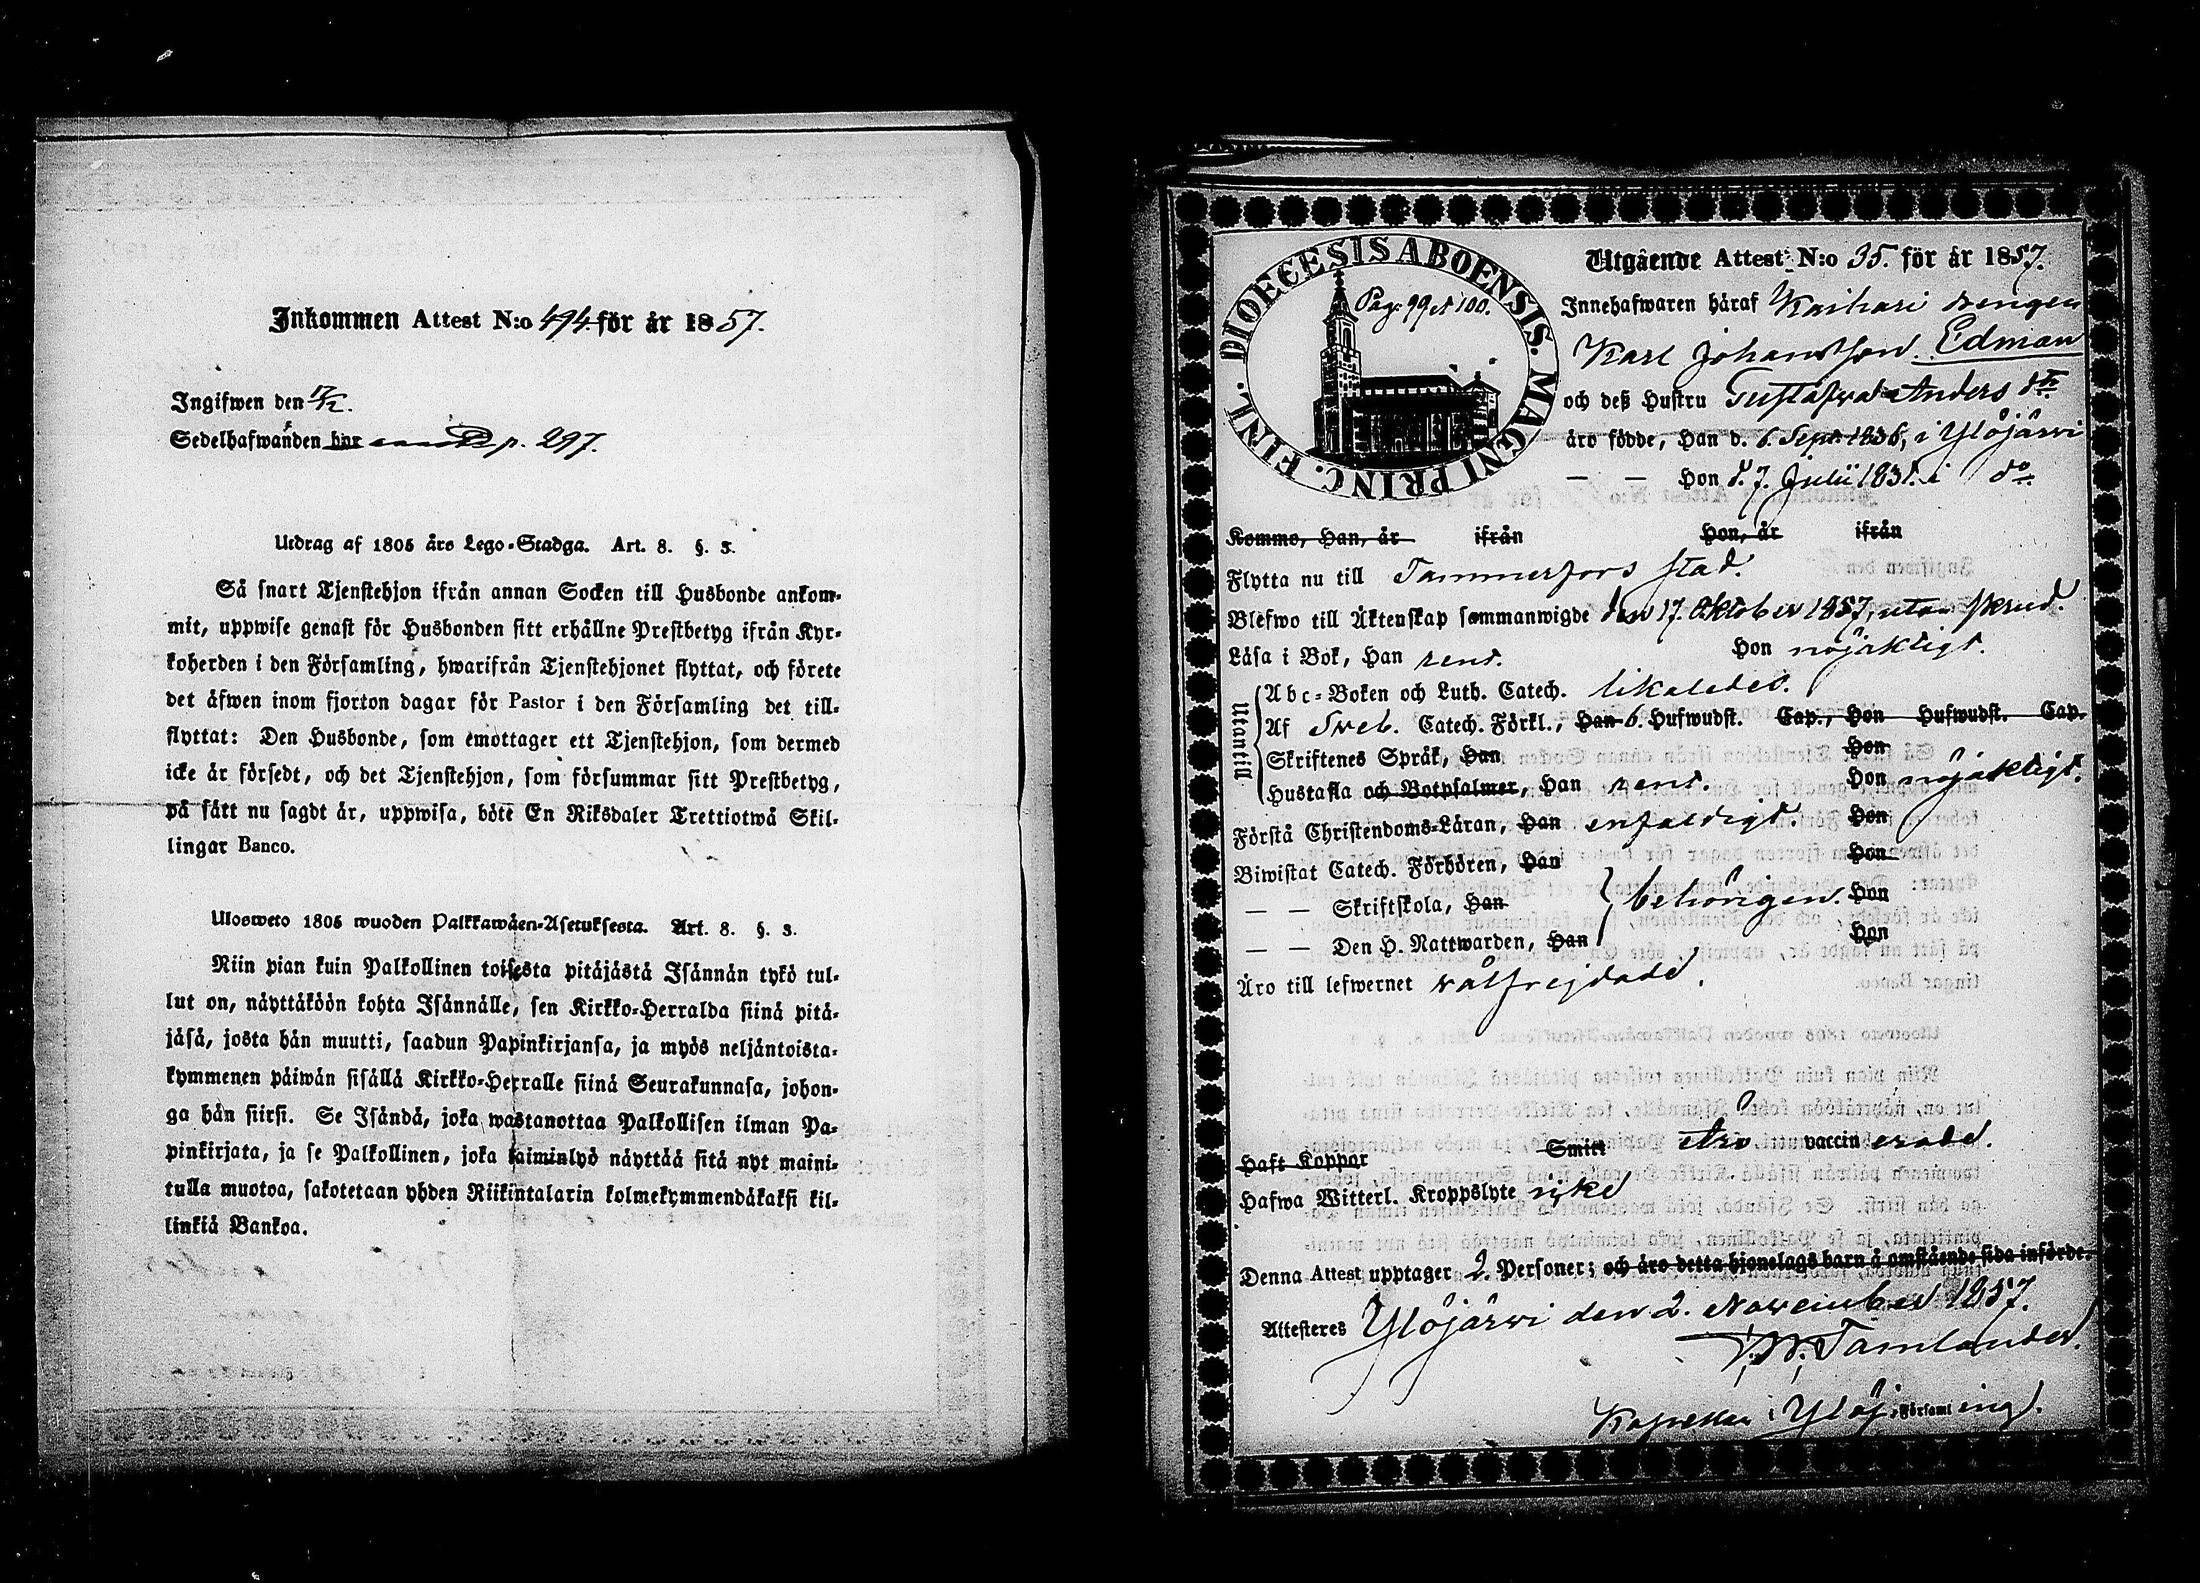 Inkommen Attest N:o 494 för år 1857.
Ingifwen den
Sedelhafwanden bor p. 297.
Utdrag af 1805 års Lego-Stadga. Art. 8. §. 3.
Så snart Tjenstehjon ifrån annan Socken till Husbonde ankom-
mit, uppwise genast för Husbonden sitt erhållne Prestbetyg ifrån Kyr-
koherden i den Församling, hwarifrån Tjenstehjonet flyttat, och förete
det äfwen inom fjorton dagar för Pastor i den Församling det till-
flyttat: Den Husbonde, som emottager ett Tjenstehjon, som dermed
icke är försedt, och det Tjenstehjon, som försummar sitt Prestbetyg,
på sätt nu sagdt är, uppwisa, böte En Riksdaler Trettiotwå Skil-
lingar Banco.
Ulosweto 1805 wuoden Palkkawäen-Asetuksesta. Art. 8. §. 3.
Niin pian kuin Palkollinen toisesta pitäjästä Isännän tykö tul-
lut on, näyttäköön kohta Isännälle, sen Kirkko-Herralda siinä pitä-
jäsä, josta hän muutti, saadun Papinkirjansa, ja myös neljäntoista-
kymmenen päiwän sisällä Kirkko-Herralle siinä Seurakunnasa, johon-
ga hän siirsi. Se Isändä, joka wastanottaa Palkollisen ilman Pa-
pinkirjata, ja se Palkollinen, joka laiminlyö näyttää sitä nyt maini-
tulla muotoa, sakotetaan yhden Riikintalarin kolmekymmendäkaksi kil-
linkiä Bankoa.
DIOECESIS ABOENSIS. MAGNI PRINC. FINL.
Pag. 99 et 100.
Utgående Attest N:o 35. för år 1857.
Innehafwaren häraf Kaihari drengen
Karl Johansson Edman
och deß Hustru Gustafva Anders dtr
äro födde, Han d. 6. Sept. 1836, i Ylöjärvi
— — Hon d. 7. Julii 1831. i do
Kommo, Han, år ifrån Hon, år ifrån
Flytta nu till Tammerfors stad.
Blefwo till Äktenskap sammanwigde den 17. Oktober 1857, utan skrud.
Läsa i Bok, Han rent. Hon nöjaktigt.
Utantill
Abc-Boken och Luth. Catech. likaledes.
Af Sveb. Catech. Förkl., Han 6. Hufwudst. Cap., Hon Hufwudst. Cap.
Skriftenes Språk, Han Hon
Hustafla och Botpsalmer, Han rent. Hon nöjaktigt.
Förstå Christendoms-Läran, Han enfaldigt. Hon
Biwistat Catech. Förhören, Han Hon
— — Skriftskola, Han behörigen. Hon
— — Den H. Nattwarden, Han Hon
Äro till lefwernet välfrejdade.
Haft Koppor Smitt Äro vaccinerade.
Hafwa Witterl. Kroppslyte icke
Denna Attest upptager 2. Personer; och äro detta hjonelags barn å omstående sida införde.
Attesteres Ylöjärvi den 2. November 1857.
Tamlander.
Kapellan i Ylöj. Församling.